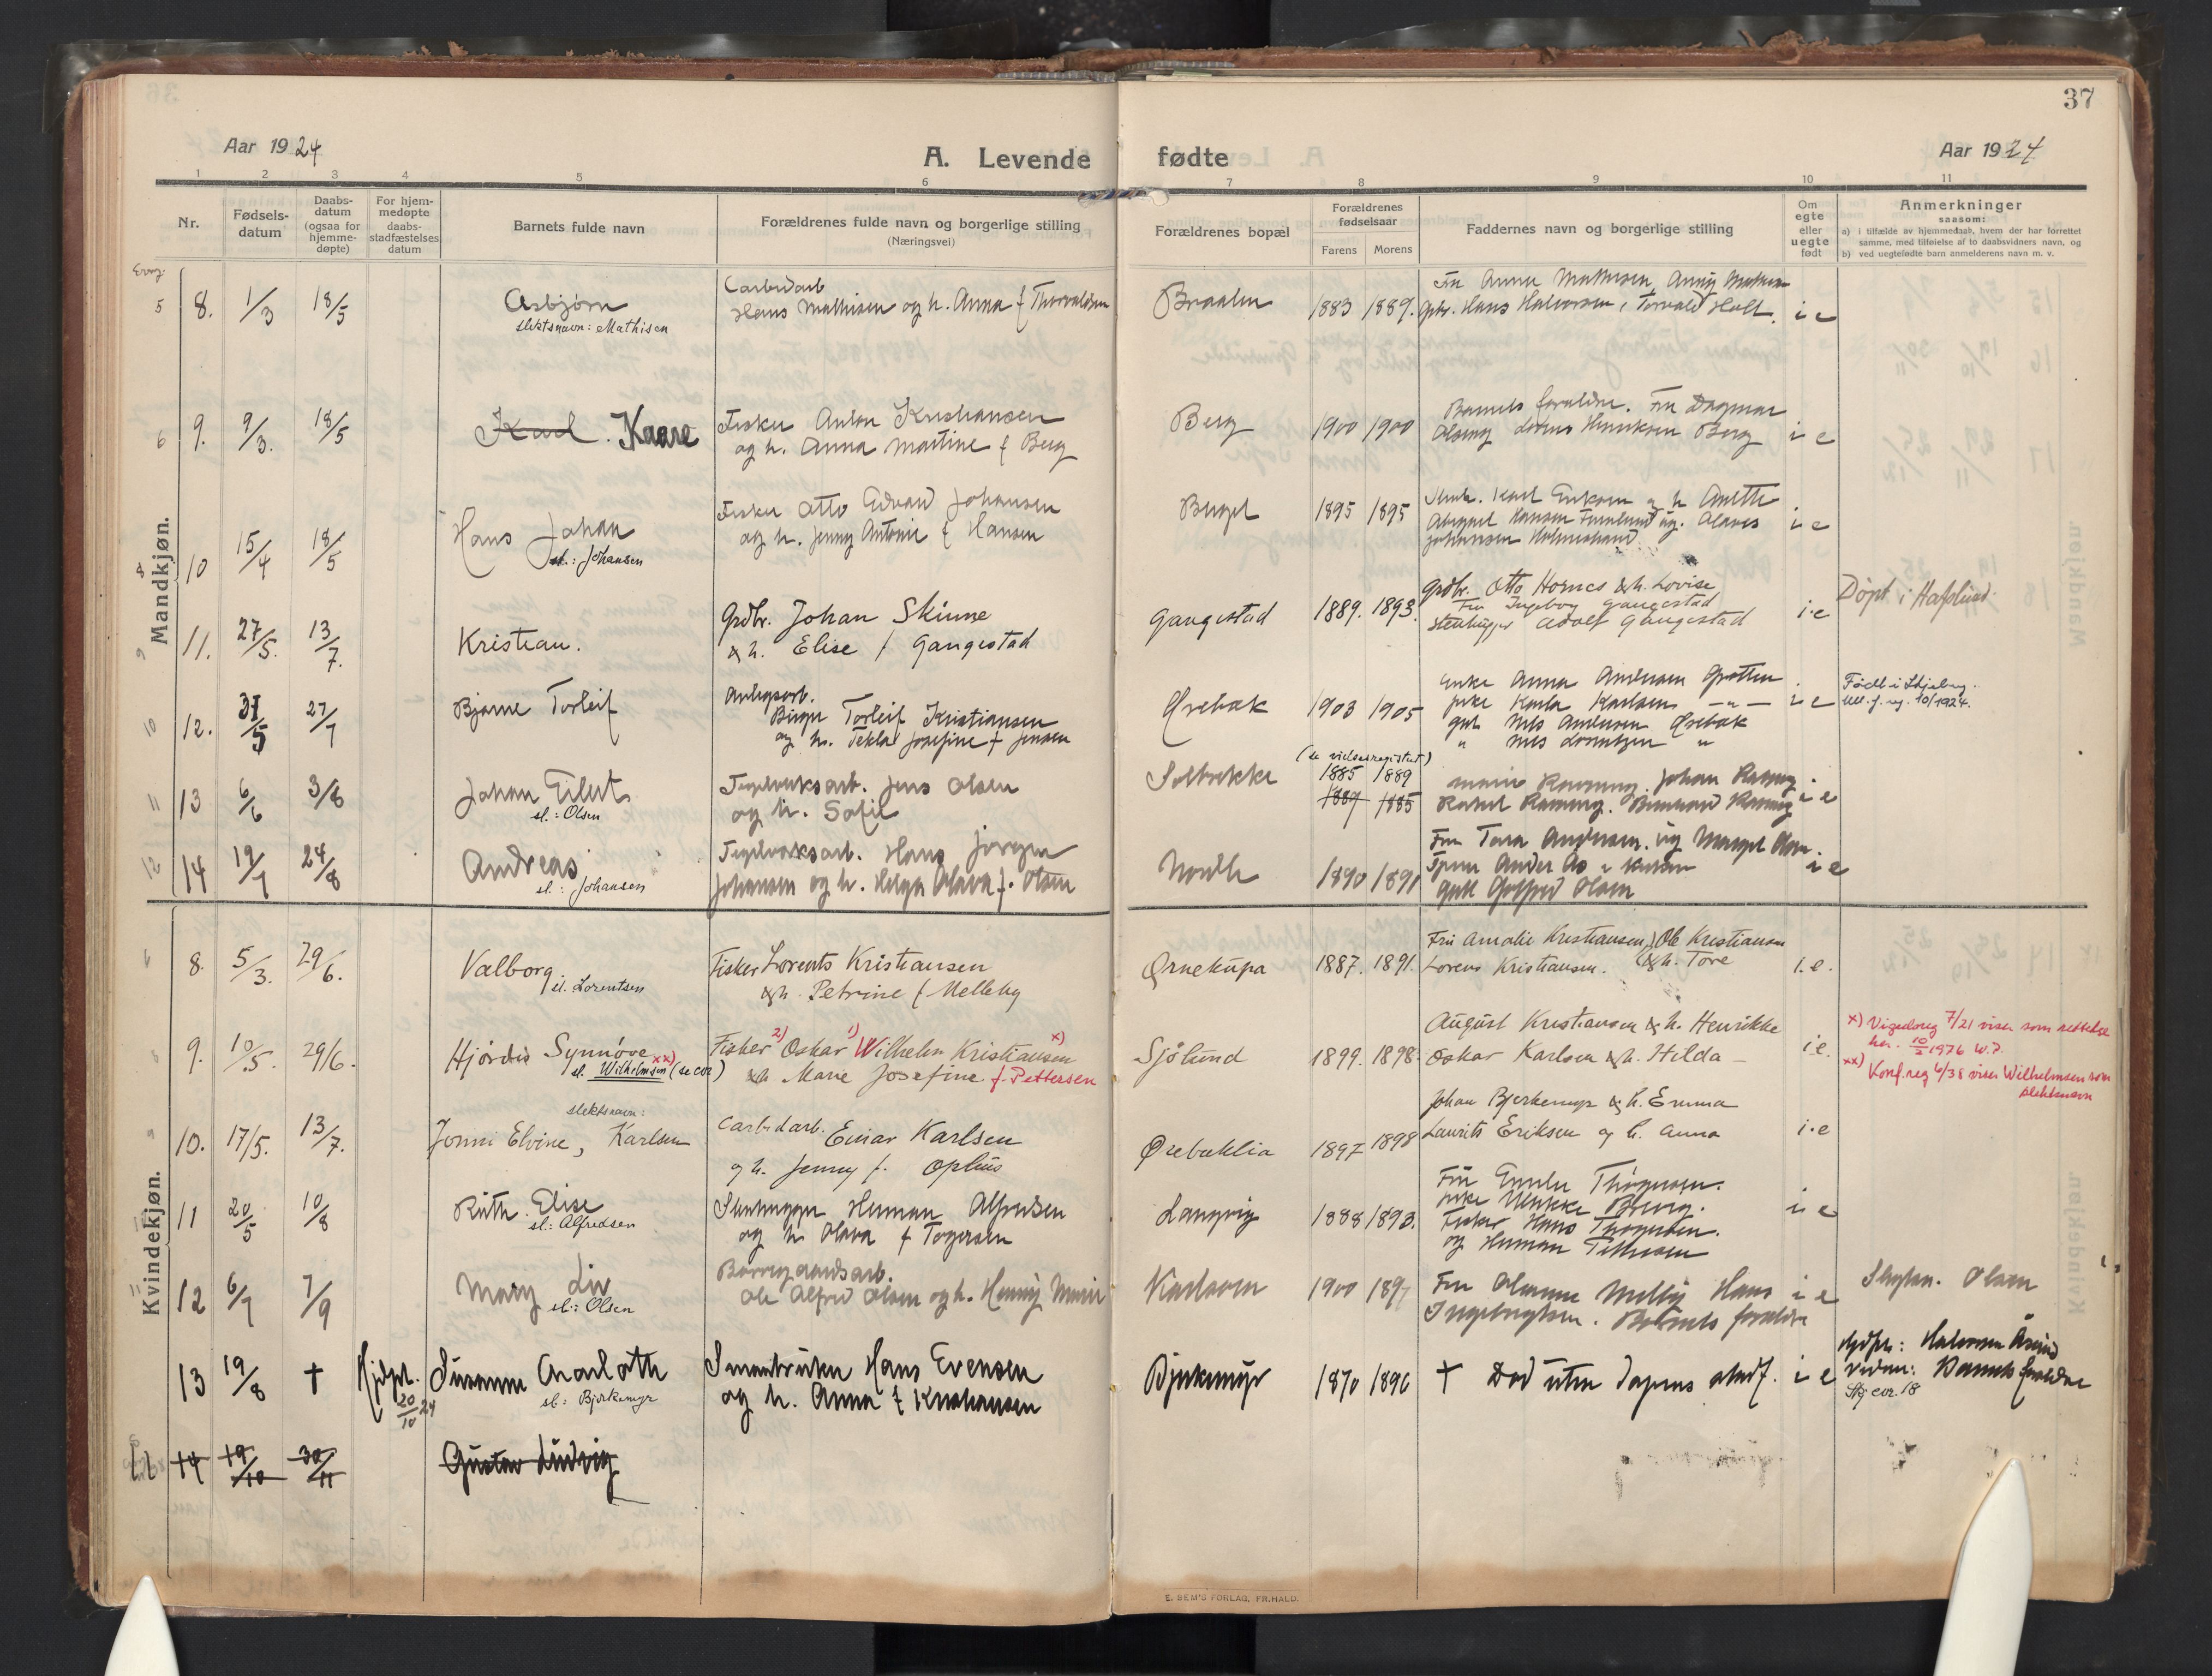 37
Aar 1924
A. Levende fødte
Aar 1924
1 2 3 4 5 6 7 8 9 10 11
Nr.
Fødsels-
datum
Daabs-
datum
(ogsaa for
hjemme-
døpte)
For hjem-
medøpte
daabs-
stadfæstelses
datum
Barnets fulde navn
Forældrenes fulde navn og borgerlige stilling
(Næringsvei)
Forældrenes bopæl
Forældrenes
fødselsaar
Farens Morens
Faddernes navn og borgerlige stilling
Om
egte
eller
uegte
født
Anmerkninger
saasom:
a) i tilfælde av hjemmedaab, hvem der har forrettet
samme, med tilføielse af to daabsvidners navn, og
b) ved uegtefødte barn anmelderens navn m. v.
Mandkjøn.
5 8. 1/3 18/5
Asbjørn
slektsnavn: Mathisen
Carbidarb
Hans Mathisen og h. Anna f Thorvaldsen
Braaten
1883 1889.
Fru Anna Mathisen, Anny Mathisen
Gbr. Hans Halvorsen, Torvald Holt.
i e
6 9. 9/3. 18/5
Karl. Kaare
Fisker Anton Kristiansen
og h. Anna Martine f Berg
Berg
1900 1900
Barnets foraldre. Fru Dagmar
Olsen Henriksen Berg
i e
8 10 15/4 18/5
Hans Johan
sl.: Johansen
Fisker Otto Edvard Johansen
og h. Jenny Antonie f Hansen
Berget
1895 1895
Karl Eriksen og h Anette
Hansen Olaves
Johansen
i e
9 11. 27/5. 13/7.
Kristian.
Grdbr. Johan Skinne
& h. Elise f Gangestad
Gangestad
1889. 1893.
Grdbr. Otto Hornes & h. Lovise
Fru Ingeborg Gangestad
Stenhugger Adolf Gangestad
i e
Døpt i Hafslund.
10 12. 31/5 27/7
Bjarne Torleif
Anlegsarb.
Birger Torleif Kristiansen
og h. Tekla Josefine f Jensen
Ørebæk
1903 1905
Enke Anna Andersen Grotten
pike Karla Karlsen — " —
gut Nils Andersen Ørebæk
" Nils Lorentzen "
i e
Født i Skjeberg.
10/1924.
11 13 6/6 3/8
Johan Eilert
sl.: Olsen
Teglverksarb. Jens Olsen
og h. Sofie
Solbrekke
(se vielsesregistret)
1885 1889
1889 1885
Marie Ramung. Johan Ramung.
Rakel Ramung. Bernhard Ramung
i e
12 14 19/7 24/8
Andreas
sl.: Johansen
Teglverksarb. Hans Jørgen
Johansen og h. Helga Olava f. Olsen
Nordli
1890 1891
Fru Tora Andersen, og Margit
Gutt Gotfred Olsen
i e
Kvindekjøn.
8. 5/3. 29/6.
Valborg
sl. Lorentsen
Fisker Lorents Kristiansen
& h. Petrine f Melleby
Ørnekupa
1887. 1891.
Fru Amalie Kristiansen, Ole Kristiansen
Lorens Kristiansen. & h. Tore
i. e.
9. 10/5. 29/6.
Hjørdis Synnøve xx)
sl. Wilhelmsen (se cor)
Fisker 2) Oskar 1) Wilhelm Kristiansen x)
& h. Marie Josefine f. Pettersen
Sjølund
1899. 1898.
August Kristiansen & h. Henrikke
Oskar Karlsen & h. Hilda —
i e.
x) Vigselsreg 7/21 viser som rettelse
her. 10/2 1976 W.P.
xx) Konf.reg 6/38 viser Wilhelmsen som
slektsnavn
10. 17/5. 13/7.
slektsnavn:
Jonni Elvine, Karlsen
Carbidarb. Einar Karlsen
og h. Jenny f. Ophus
Ørebæklia
1897 1898
Johan Bjerkemyr & h. Emma
Laurits Eriksen og h. Anna
i e
11 20/5 10/8
Ruth Elise
sl.: Alfredsen
Stenhugger Herman Alfredsen
og h Olava f Togersen
Langvig
1888 1893.
Fru Emilie Thøgersen.
pike Ulrikke Brevig.
Fisker Hans Thøgersen.
og Herman
i e
12 6/7 7/9
Mary Liv
sl.: Olsen
Borregaardsarb.
Ole Alfred Olsen og h. Henny Marie
Karlsven
1900 1897
Fru Melby Hans
Ingebrigtsen. Barnets foraldre
i e
Olsen
13 19/8 † Hjdpt. 20/10 24
Susanne Charlotte
sl: Bjerkemyr
Smaabruker Hans Evensen
og h. Anna f Kristiansen
Bjerkemyr
1870 1896
† Død uten dapens stadf.
i e
Hjdpt: Halvorsen
Vidner: Barnets foraldre
cor. 18
14 19/10 30/11
Gustav Ludvig
E. SEM'S FORLAG, FR.HALD.